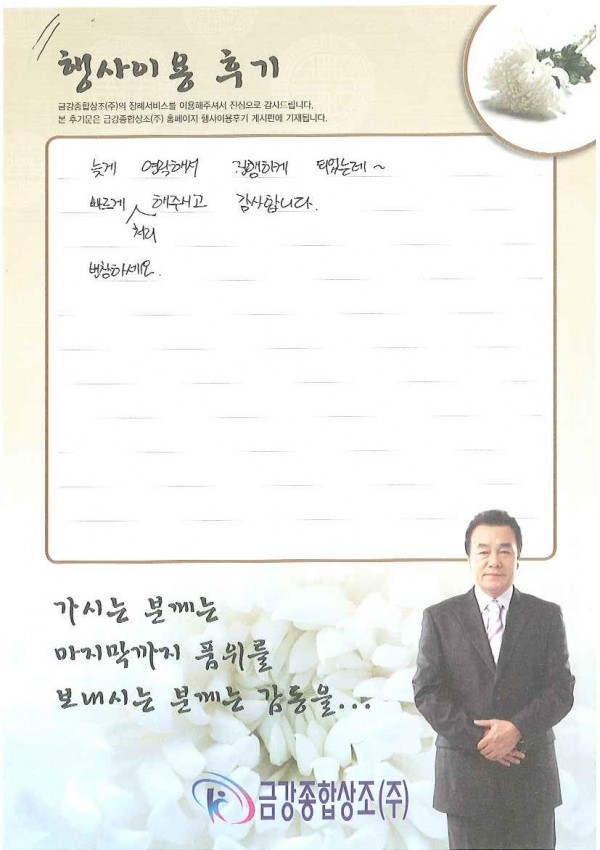 행사이용 후기
금강종합상조(주)의 장례서비스를 이용해주셔서 진심으로 감사드립니다.
본 후기문은 금강종합상조(주) 홈페이지 행사이용후기 게시판에 기재됩니다.
늦게 연락해서 진행하게 되었는데~
빠르게 처리 해주시고 감사합니다.
번창하세요.
가시는 분께는
마지막까지 품위를
보내시는 분께는 감동을...
금강종합상조(주)